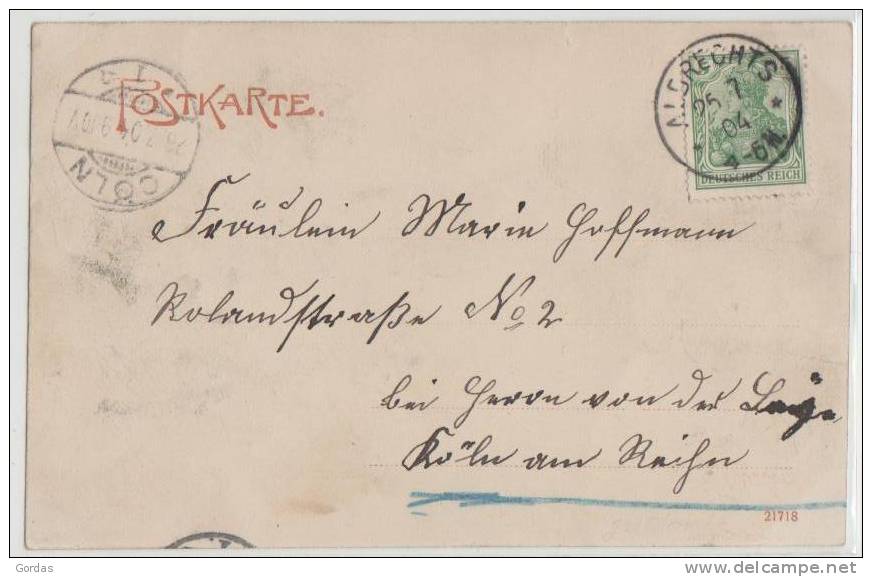 POSTKARTE.
ALBRECHTS
25.7
04
DEUTSCHES REICH
CÖLN
Fräulein Marie Hoffmann
Rolandstraße No 2
bei Herrn von der
Köln am Reihn
21718
© Gordas
www.delcampe.net